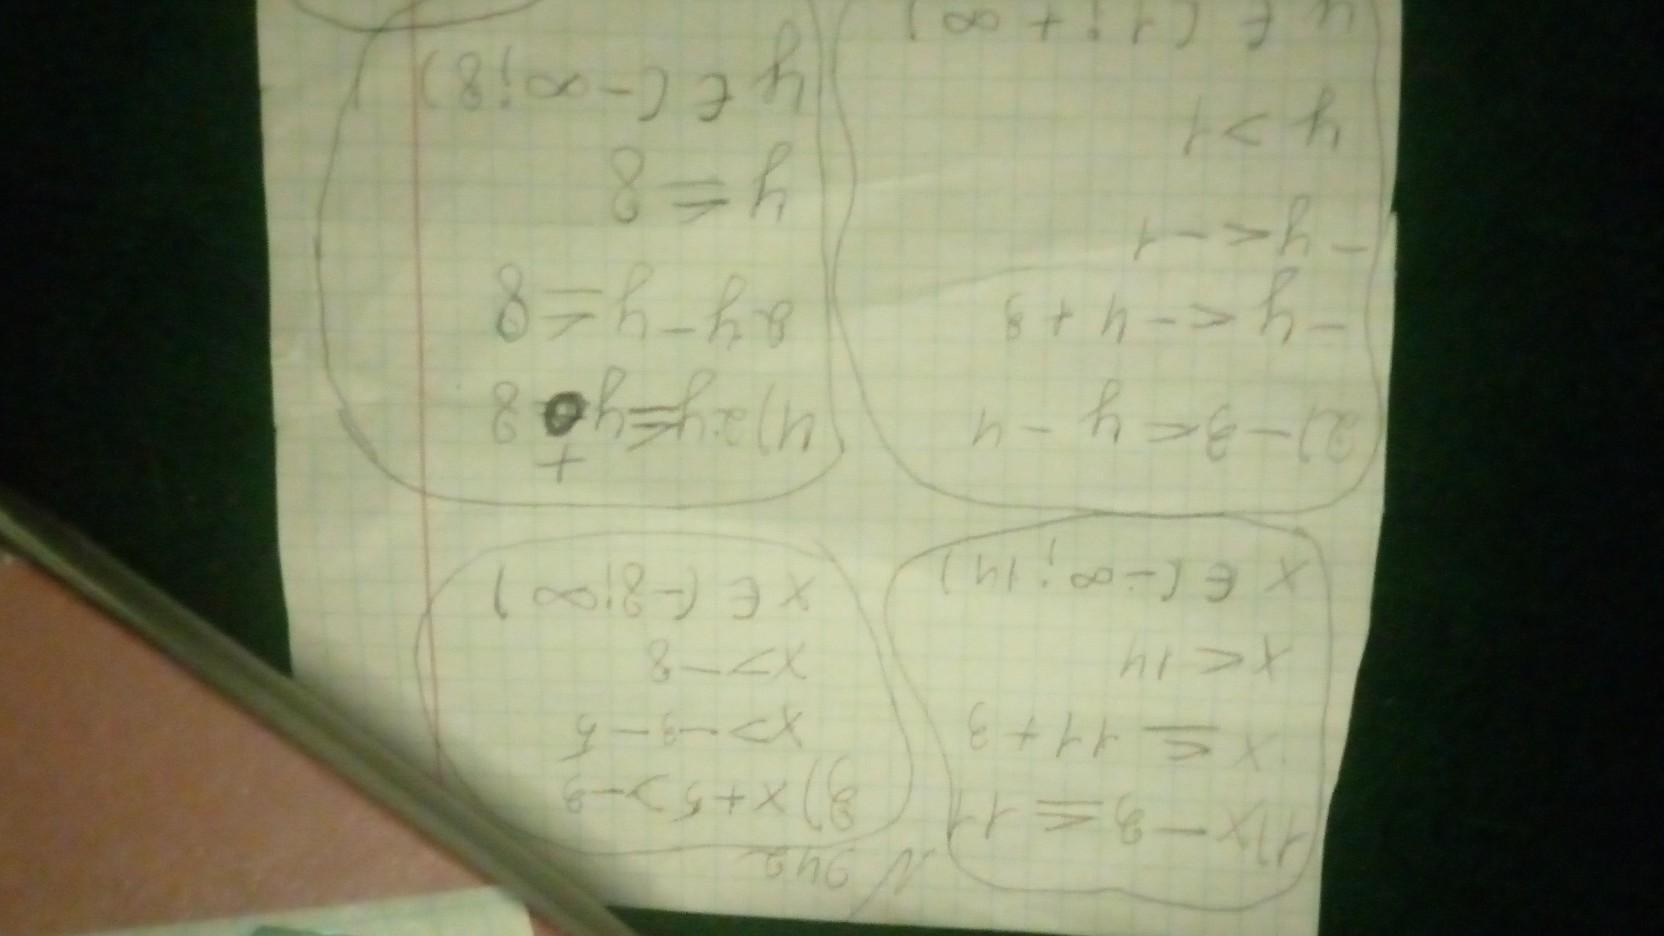 N 342
1) x - 3 ≤ 11
x ≤ 11 + 3
x < 14
x ∈ (-∞; 14)
3) x + 5 > -3
x > -3 - 5
x > -8
x ∈ (-8; ∞)
2) -3 < y - 4
-y < -4 + 3
-y < -1
y > 1
y ∈ (1; +∞)
4) 2y ≤ y + 8
2y - y ≤ 8
y ≤ 8
y ∈ (-∞; 8)